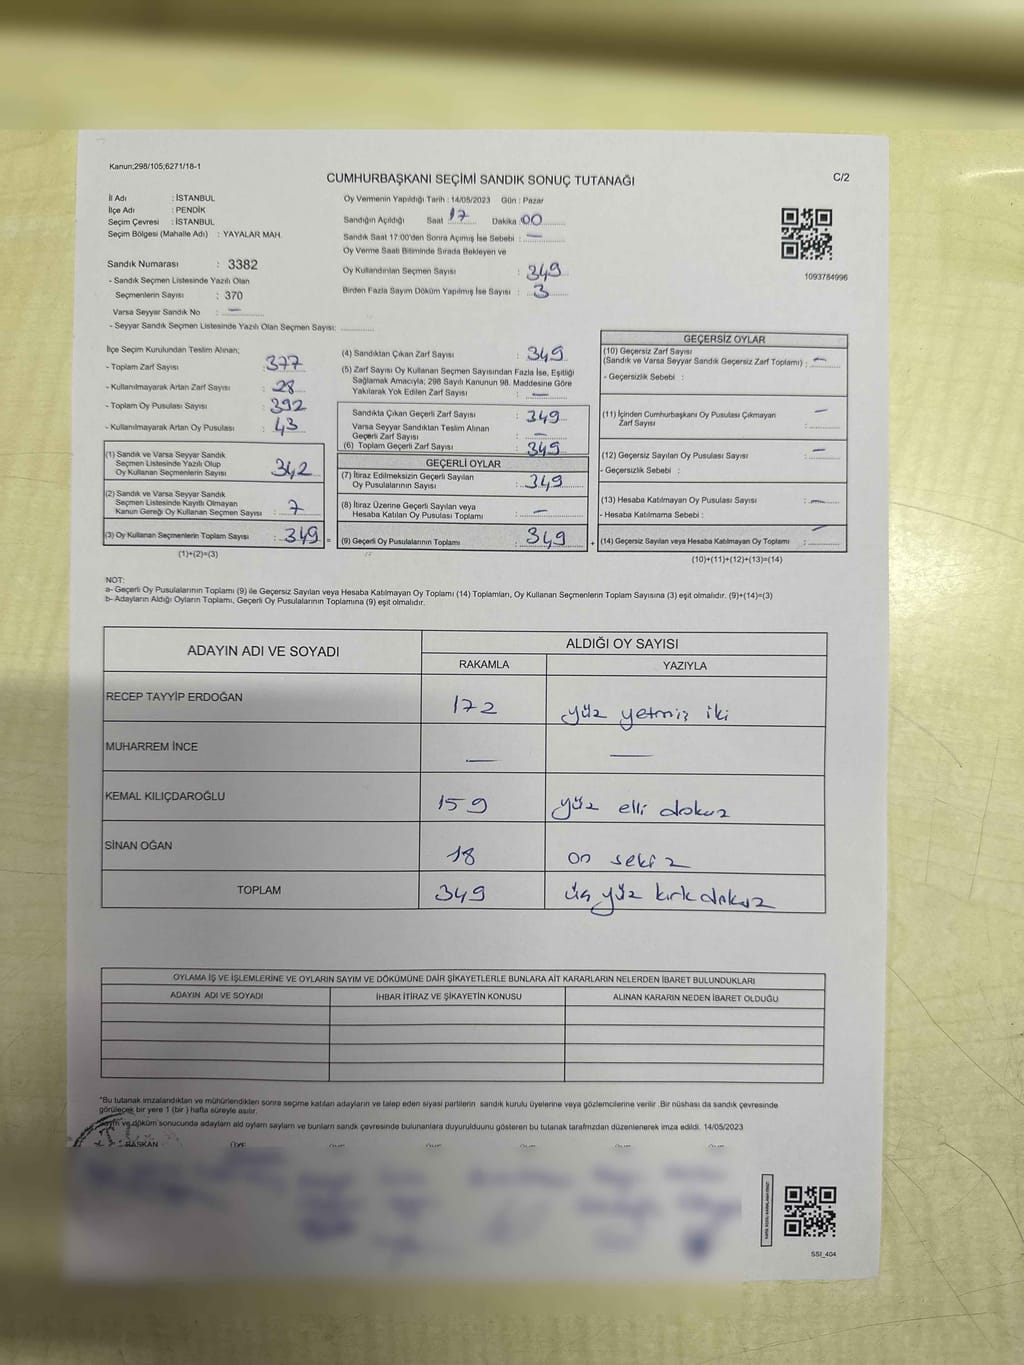 Kanun;298/105;6271/18-1
CUMHURBAŞKANI SEÇİMİ SANDIK SONUÇ TUTANAĞI
C/2
İl Adı : İSTANBUL
İlçe Adı : PENDİK
Seçim Çevresi : İSTANBUL
Seçim Bölgesi (Mahalle Adı) : YAYALAR MAH.
Sandık Numarası : 3382
- Sandık Seçmen Listesinde Yazılı Olan
Seçmenlerin Sayısı : 370
Varsa Seyyar Sandık No : —
- Seyyar Sandık Seçmen Listesinde Yazılı Olan Seçmen Sayısı:
Oy Vermenin Yapıldığı Tarih : 14/05/2023 Gün : Pazar
Sandığın Açıldığı Saat 17 Dakika 00
Sandık Saat 17:00'den Sonra Açımış İse Sebebi : —
Oy Verme Saati Bitiminde Sırada Bekleyen ve
Oy Kullandırılan Seçmen Sayısı : 349
Birden Fazla Sayım Döküm Yapılmış İse Sayısı : 3
1093784996
İlçe Seçim Kurulundan Teslim Alınan;
- Toplam Zarf Sayısı : 377
- Kullanılmayarak Artan Zarf Sayısı : 28
- Toplam Oy Pusulası Sayısı : 392
- Kullanılmayarak Artan Oy Pusulası : 43
(1) Sandık ve Varsa Seyyar Sandık
Seçmen Listesinde Yazılı Olup
Oy Kullanan Seçmenlerin Sayısı : 342
(2) Sandık ve Varsa Seyyar Sandık
Seçmen Listesinde Kayıtlı Olmayan
Kanun Gereği Oy Kullanan Seçmen Sayısı : 7
(3) Oy Kullanan Seçmenlerin Toplam Sayısı : 349 =
(1)+(2)=(3)
(4) Sandıktan Çıkan Zarf Sayısı : 349
(5) Zarf Sayısı Oy Kullanan Seçmen Sayısından Fazla İse, Eşitliği
Sağlamak Amacıyla; 298 Sayılı Kanunun 98. Maddesine Göre
Yakılarak Yok Edilen Zarf Sayısı : —
Sandıkta Çıkan Geçerli Zarf Sayısı : 349
Varsa Seyyar Sandıktan Teslim Alınan
Geçerli Zarf Sayısı : —
(6) Toplam Geçerli Zarf Sayısı : 349
GEÇERLİ OYLAR
(7) İtiraz Edilmeksizin Geçerli Sayılan
Oy Pusulalarının Sayısı : 349
(8) İtiraz Üzerine Geçerli Sayılan veya
Hesaba Katılan Oy Pusulası Toplamı : —
(9) Geçerli Oy Pusulalarının Toplamı : 349 +
GEÇERSİZ OYLAR
(10) Geçersiz Zarf Sayısı
(Sandık ve Varsa Seyyar Sandık Geçersiz Zarf Toplamı) : —
- Geçersizlik Sebebi :
(11) İçinden Cumhurbaşkanı Oy Pusulası Çıkmayan
Zarf Sayısı : —
(12) Geçersiz Sayılan Oy Pusulası Sayısı : —
- Geçersizlik Sebebi :
(13) Hesaba Katılmayan Oy Pusulası Sayısı : —
- Hesaba Katılmama Sebebi :
(14) Geçersiz Sayılan veya Hesaba Katılmayan Oy Toplamı : —
(10)+(11)+(12)+(13)=(14)
NOT:
a- Geçerli Oy Pusulalarının Toplamı (9) ile Geçersiz Sayılan veya Hesaba Katılmayan Oy Toplamı (14) Toplamları, Oy Kullanan Seçmenlerin Toplam Sayısına (3) eşit olmalıdır. (9)+(14)=(3)
b- Adayların Aldığı Oyların Toplamı, Geçerli Oy Pusulalarının Toplamına (9) eşit olmalıdır.
ADAYIN ADI VE SOYADI ALDIĞI OY SAYISI
RAKAMLA YAZIYLA
RECEP TAYYİP ERDOĞAN 172 yüz yetmiş iki
MUHARREM İNCE — —
KEMAL KILIÇDAROĞLU 159 yüz elli dokuz
SİNAN OĞAN 18 on sekiz
TOPLAM 349 üç yüz kırk dokuz
OYLAMA İŞ VE İŞLEMLERİNE VE OYLARIN SAYIM VE DÖKÜMÜNE DAİR ŞİKAYETLERLE BUNLARA AİT KARARLARIN NELERDEN İBARET BULUNDUKLARI
ADAYIN ADI VE SOYADI İHBAR İTİRAZ VE ŞİKAYETİN KONUSU ALINAN KARARIN NEDEN İBARET OLDUĞU
"Bu tutanak imzalandıktan ve mühürlendikten sonra seçime katılan adayların ve talep eden siyasi partilerin sandık kurulu üyelerine veya gözlemcilerine verilir .Bir nüshası da sandık çevresinde
görülecek bir yere 1 (bir ) hafta süreyle asılır.
ve döküm sonucunda adayların ald oyların sayların ve bunların sandık çevresinde bulunanlara duyurulduunu gösteren bu tutanak tarafmzdan düzenlenerek imza edildi. 14/05/2023
BAŞKAN
SSI_404